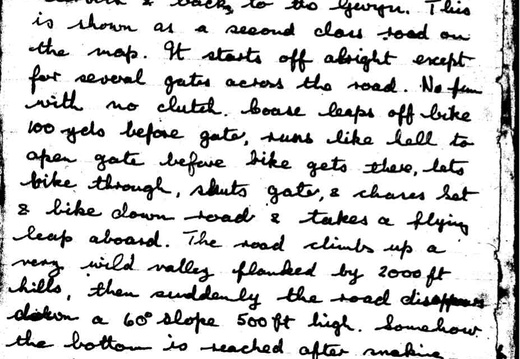 & back to the Gwryn. This
is shown as a second class road on
the map. It starts off alright except
for several gates across the road. No fun
with no clutch. Coase leaps off bike
100 yds before gate, runs like hell to
open gate before bike gets there, lets
bike through, shuts gate, & chases Set
& bike down road & takes a flying
leap aboard. The road climbs up a
very wild valley flanked by 2000 ft
hills, then suddenly the road disappears
down a 60° slope 500 ft high. Somehow
the bottom is reached after snaking